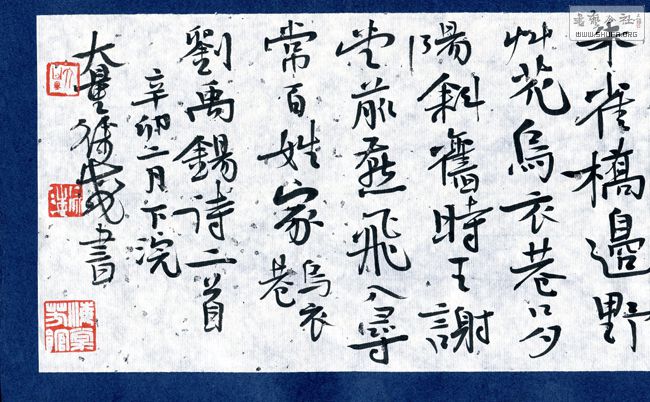 朱雀橋邊野
艸花烏衣巷口夕
陽斜舊時王謝
堂前燕飛入尋
常百姓家 烏衣巷
劉禹錫诗二首
辛卯二月下浣
書
WWW.SHUFA.ORG